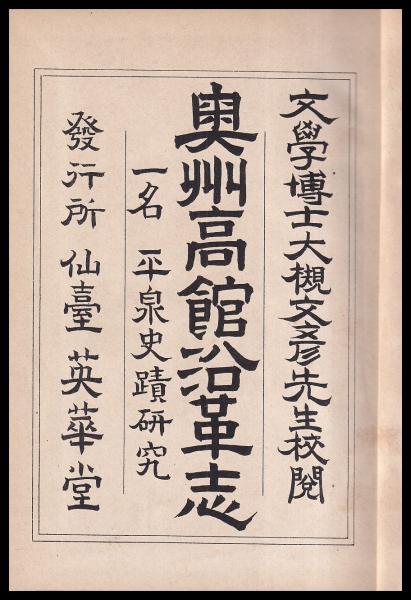 文學博士大槻文彥先生校閱
奧州高館沿革志
一名 平泉史蹟研究
發行所 仙臺 英華堂